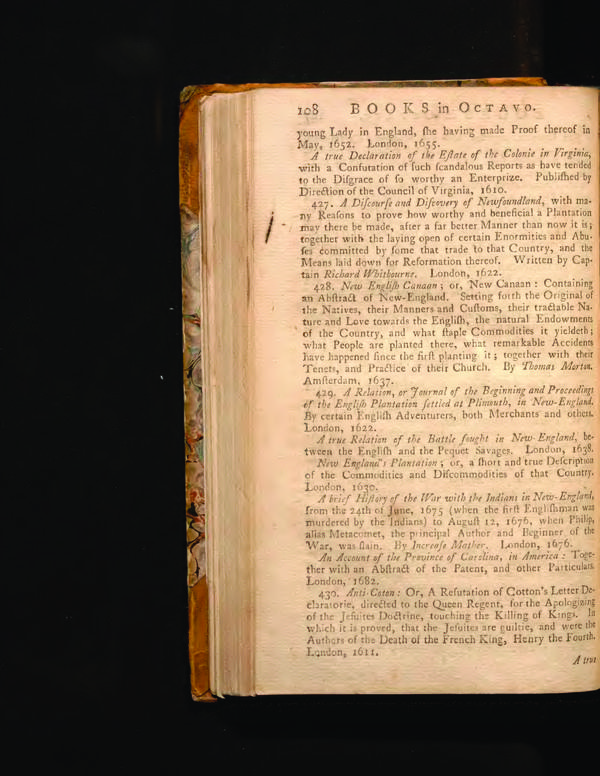 108 BOOKS in OCTAVO.
young Lady in England, ſhe having made Proof thereof in
May, 1652. London, 1655.
A true Declaration of the Eſtate of the Colonie in Virginia,
with a Confutation of ſuch ſcandalous Reports as have tended
to the Diſgrace of ſo worthy an Enterprize. Publiſhed by
Direction of the Council of Virginia, 1610.
427. A Diſcourſe and Diſcovery of Newfoundland, with ma-
ny Reaſons to prove how worthy and beneficial a Plantation
may there be made, after a far better Manner than now it is;
together with the laying open of certain Enormities and Abu-
ſes committed by ſome that trade to that Country, and the
Means laid down for Reformation thereof. Written by Cap-
tain Richard Whitbourne. London, 1622.
428. New Engliſh Canaan; or, New Canaan: Containing
an Abſtract of New-England. Setting forth the Original of
the Natives, their Manners and Cuſtoms, their tractable Na-
ture and Love towards the Engliſh, the natural Endowments
of the Country, and what ſtaple Commodities it yieldeth;
what People are planted there, what remarkable Accidents
have happened ſince the firſt planting it; together with their
Tenets, and Practice of their Church. By Thomas Morton.
Amſterdam, 1637.
429. A Relation, or Journal of the Beginning and Proceedings
of the Engliſh Plantation ſettled at Plimouth, in New-England.
By certain Engliſh Adventurers, both Merchants and others.
London, 1622.
A true Relation of the Battle fought in New-England, be-
tween the Engliſh and the Pequet Savages. London, 1638.
New England's Plantation; or, a ſhort and true Deſcription
of the Commodities and Diſcommodities of that Country.
London, 1630.
A brief Hiſtory of the War with the Indians in New-England,
from the 24th of June, 1675 (when the firſt Engliſhman was
murdered by the Indians) to Auguſt 12, 1676, when Philip,
alias Metacomet, the principal Author and Beginner of the
War, was ſlain. By Increaſe Mather. London, 1676.
An Account of the Province of Carolina, in America: Toge-
ther with an Abſtract of the Patent, and other Particulars.
London, 1682.
430. Anti-Coton: Or, A Refutation of Cotton's Letter De-
claratorie, directed to the Queen Regent, for the Apologizing
of the Jeſuites Doctrine, touching the Killing of Kings. In
which it is proved, that the Jeſuites are guiltie, and were the
Authors of the Death of the French King, Henry the Fourth.
London, 1611.
A true